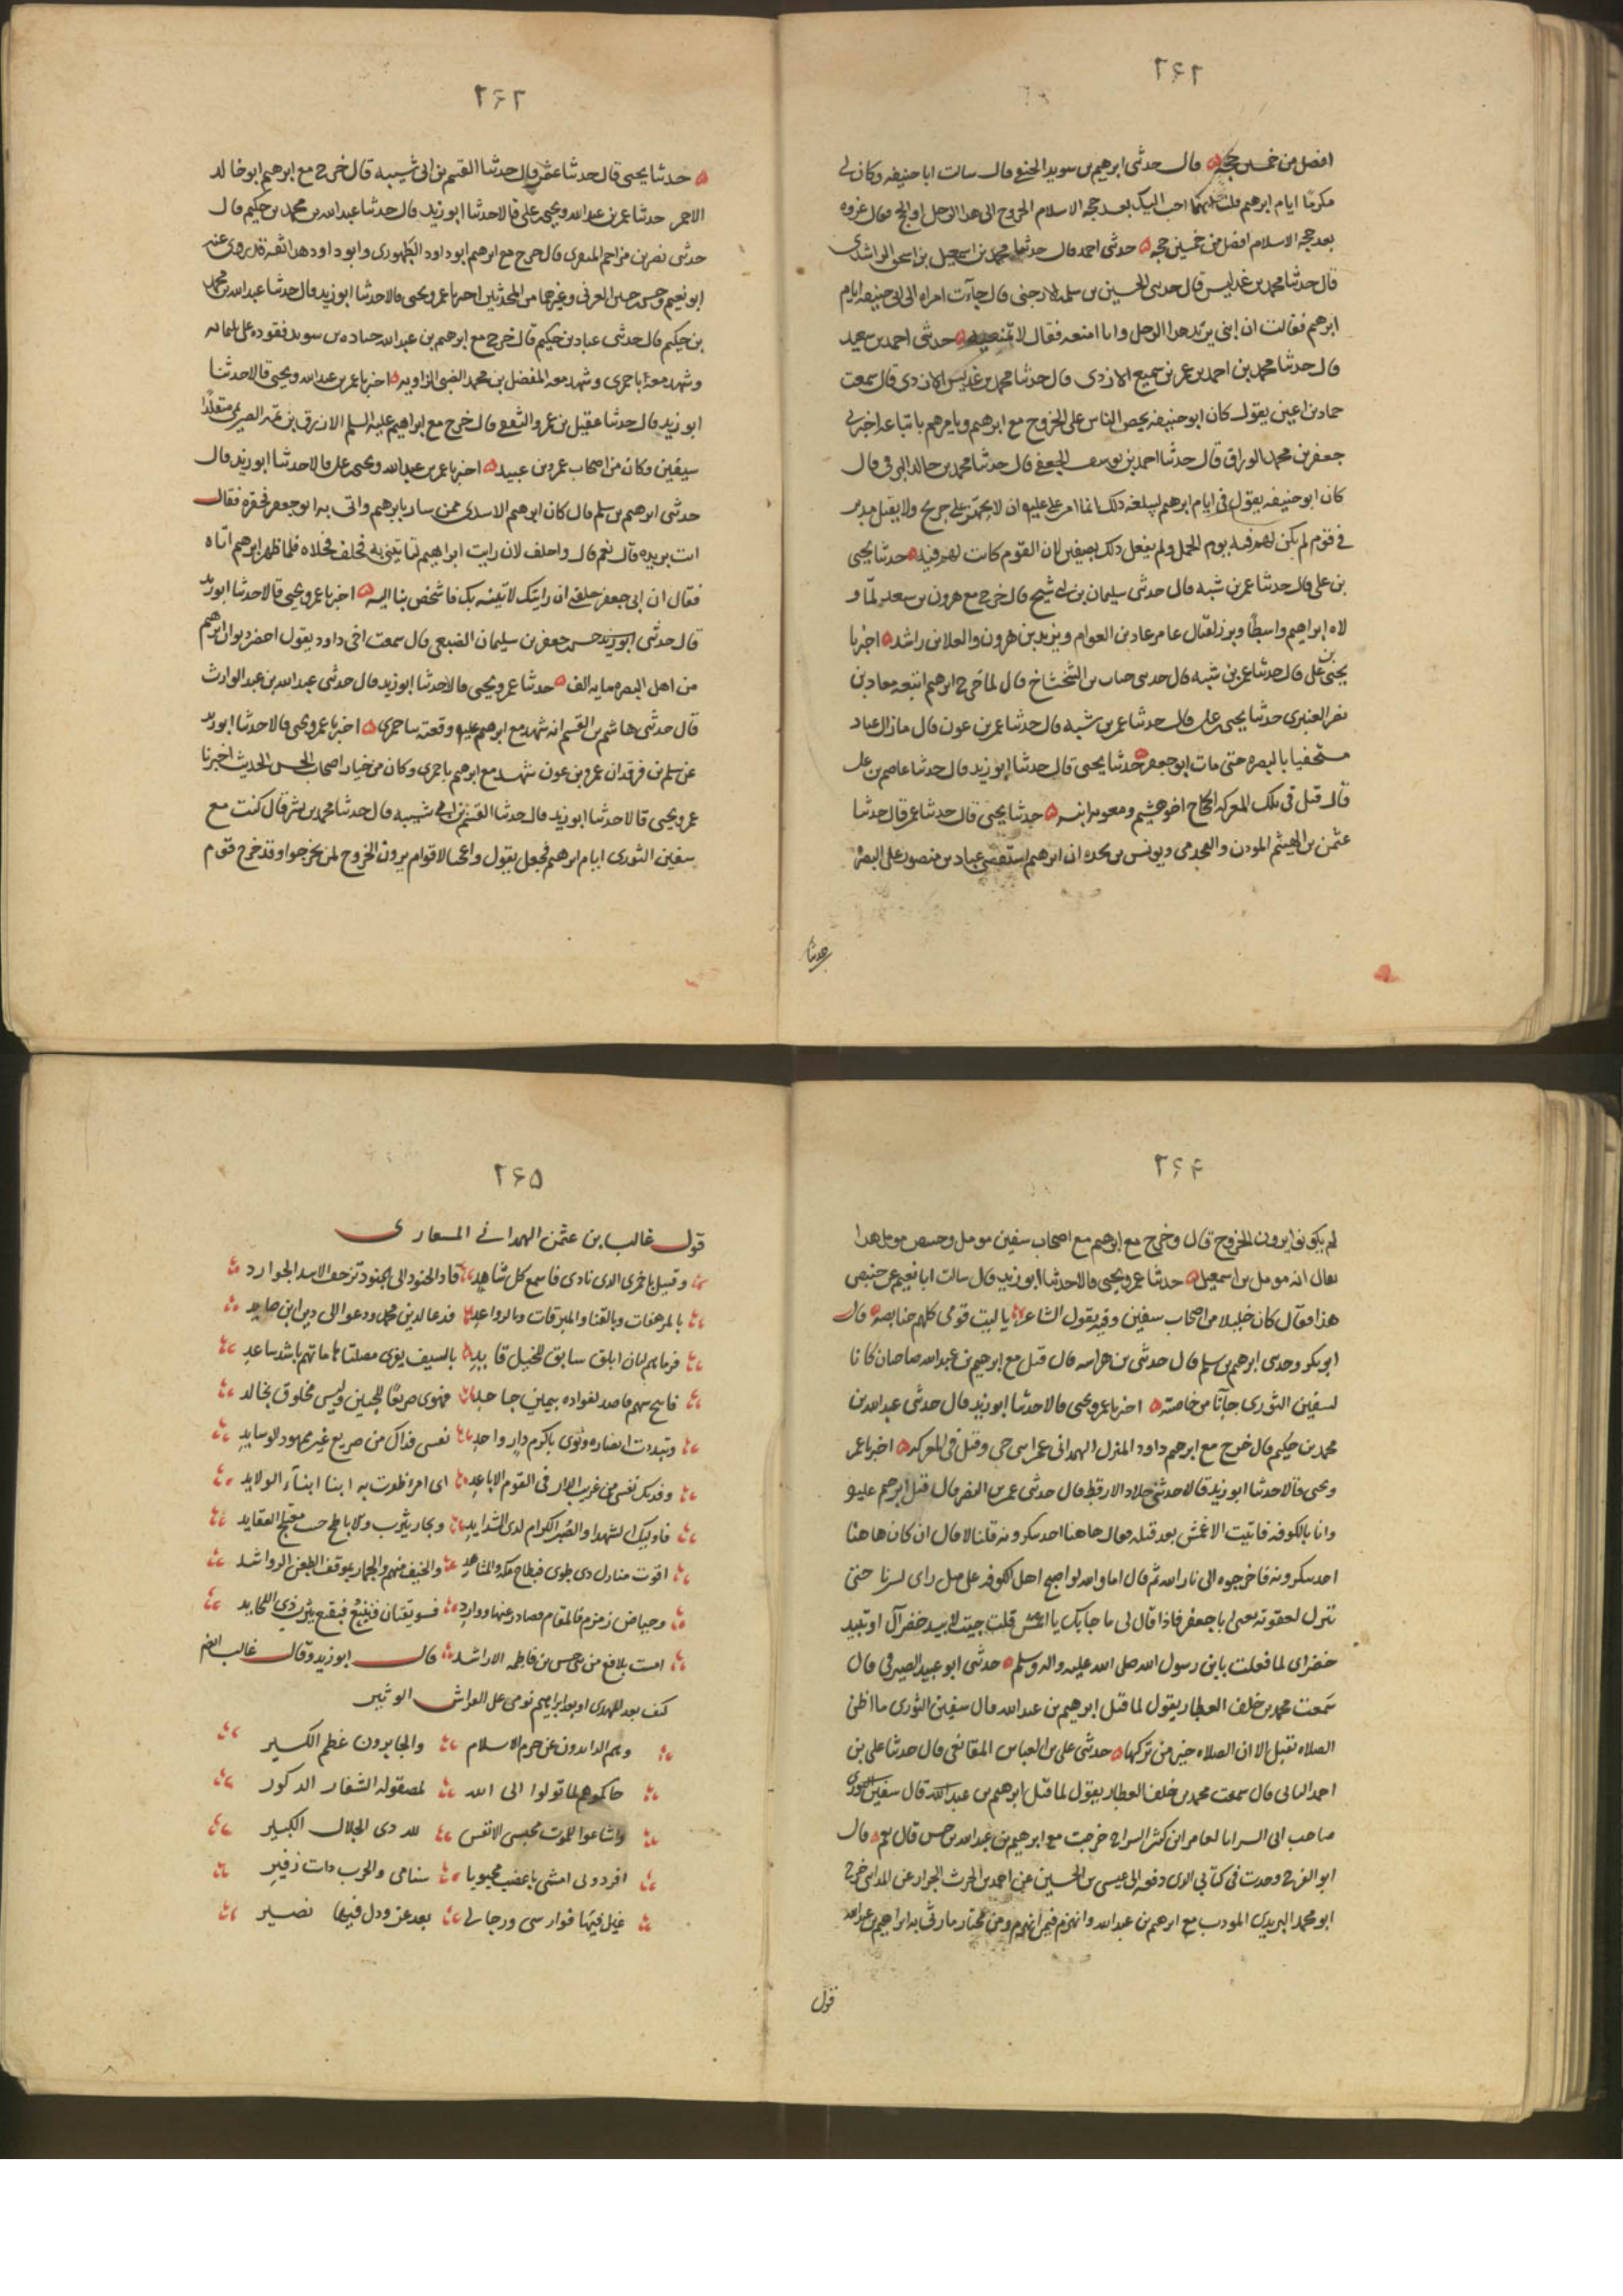 ٢۶٢
افضل من خمسين حجة ه قال حدثنى ابرهيم بن سويد الحنفى قال سالت ابا حنيفه وكان لى
مكرما ايام ابرهيم قلت ايهما احب اليك بعد حجه الاسلام الخروج الى هذا الرجل او الحج فقال غزوه
بعد حجه الاسلام افضل من خمسين حجه ه حدثنى احمد قال حدثنا محمد بن اسمعيل بن اسحق الراشدى
قال حدثنا محمد بن عديس قال حدثنى الحسين بن سلمه الارحبى قال جاءت امراه الى ابى حنيفه ايام
ابرهيم فقالت ان ابنى يريد هذا الرجل وانا امنعه فقال لا تمنعيه ه حدثنى احمد بن سعيد
قال حدثنا محمد بن احمد بن عمر بن سميع الازدى قال حدثنا محمد بن عديس الازدى قال سمعت
حماد بن اعين يقول كان ابو حنيفه يحض الناس على الخروج مع ابرهيم ويامرهم باتباعه اخبرنى
جعفر بن محمد الوراق قال حدثنا احمد بن يوسف الجعفى قال حدثنا محمد بن خالد البرقى قال
كان ابو حنيفه يقول فى ايام ابرهيم لبلغه ذلك انما امر على عليه ان لا يجهز على جريح ولا يقتل مدبر
فى قوم لم يكن لهم فئه يوم الجمل ولم يفعل ذلك بصفين لان القوم كانت لهم فئه ه حدثنا يحيى
بن على قال حدثنا عمر بن شبه قال حدثنى سليمان بن ابى شيخ قال خرج مع هرون بن سعد لما و
لاه ابراهيم واسطا وبرز لقتال عامر عباد بن العوام ويزيد بن هرون والعلا بن راشد ه اخبرنا
يحيى بن على قال حدثنا عمر بن شبه قال حدثنى جناب بن الشخشاخ قال لما خرج ابرهيم اتبعه معاذ بن
نصر العنبرى حدثنا يحيى بن على قال حدثنا عمر بن شبه قال حدثنا عمر بن عون قال ما زال عباد
مستخفيا بالبصره حتى مات ابو جعفر ه حدثنا يحيى قال حدثنا ابو زيد قال حدثنا عاصم بن على
قال قتل فى تلك المعركه الحجاج اخو هشيم ومعويه ابنه ه حدثنا يحيى قال حدثنا عمر قال حدثنا
عثمن بن الهيثم الموذن والجحدرى ويونس بن نجده ان ابرهيم استقضى عباد بن منصور على البصره
حدثنا
٢۶٢
ه حدثنا يحيى قال حدثنا عمر قال حدثنا القسم بن ابى شيبه قال خرج مع ابرهيم ابو خالد
الاحمر حدثنا عمر بن عبد الله ويحيى بن على قالا حدثنا ابو زيد قال حدثنا عبد الله بن محمد بن حكيم قال
حدثنى نصر بن مزاحم المنقرى قال خرج مع ابرهيم ابو داود الطهورى وابو داود هذا ثقه قد روى عنه
ابو نعيم وحسن بن حسين العرنى وغيرهما من المحدثين اخبرنا عمر ويحيى قالا حدثنا ابو زيد قال حدثنا عبد الله بن محمد
بن حكيم قال حدثنى عباد بن حكيم قال خرج مع ابرهيم بن عبد الله جناده بن سويد فقوده على
وشهد معه باخمرى وشهد معه المفضل بن محمد الضبى الراويه ه اخبرنا عمر بن عبد الله ويحيى قالا حدثنا
ابو زيد قال حدثنا عقيل بن عمرو الثقفى قال خرج مع ابراهيم عليه السلم الازرق بن تمه الصريمى متقلدا
سيفين وكان من اصحاب عمرو بن عبيد ه اخبرنا عمر بن عبد الله ويحيى بن على قالا حدثنا ابو زيد قال
حدثنى ابرهيم بن سلم قال كان ابرهيم الاسدى ممن سار بابرهيم واتى به ابو جعفر فقال
انت بريده قال نعم قال واحلف لان رايت ابراهيم لتاتينى به فحلف فخلاه فلما ظهر ابرهيم اتاه
فقال ان ابا جعفر حلفنى ان رايتك لاتينه بك فاشخص بنا اليه ه اخبرنا عمر ويحيى قالا حدثنا ابو زيد
قال حدثنى ابو زيد حسن بن جعفر بن سليمان الضبعى قال سمعت اخى داود يقول احضر ديوان ابرهيم
من اهل البصره مايه الف ه حدثنا عمر ويحيى قالا حدثنا ابو زيد قال حدثنى عبد الله بن عبد الوارث
قال حدثنى هاشم بن القسم انه شهد مع ابرهيم عليه وقعته بباخمرى ه اخبرنا عمر ويحيى قالا حدثنا ابو زيد
عن سلم بن فرقد ان عمرو بن عون شهد مع ابرهيم باخمرى وكان من خيار اصحاب الحسن الحديث اخبرنا
عمر ويحيى قالا حدثنا ابو زيد قال حدثنا القسم بن ابى شيبه قال حدثنا محمد بن بشر قال كنت مع
سفين الثورى ايام ابرهيم فجعل يقول واعجبا لاقوام يريدون الخروج لمن يخرجوا وقد خرج قوم
٢۶۴
لم يكونوا يرون الخروج قال وخرج مع ابرهيم مع اصحاب سفين مومل وحنبص مومل هذا
يقال انه مومل بن اسمعيل ه حدثنا عمر ويحيى قالا حدثنا ابو زيد قال سالت ابا نعيم عن حنبص
هذا فقال كان جليلا من اصحاب سفين وفيه يقول الشاعر يا ليت قومى كلهم حنابصه ه قال
ابو بكر وحدثنى ابرهيم بن سلم قال حدثنى بن هراسه قال قتل مع ابرهيم بن عبد الله صاحبان كانا
لسفين الثورى جاآ من خاصته ه اخبرنا عمر ويحيى قالا حدثنا ابو زيد قال حدثنى عبد الله بن
محمد بن حكيم قال خرج مع ابرهيم داود المنزل الهمدانى وقتل فى المعركه ه اخبرنا عمر
ويحيى قالا حدثنا ابو زيد قالا حدثنى خلاد الارقط قال حدثنى عمر بن النضر قال قتل ابرهيم عليه
وانا بالكوفه فاتيت الاعمش بعد قتله فقال هاهنا احد تنكرونه قلنا لا قال ان كان هاهنا
احد تنكرونه فاخرجوه الى نار الله ثم قال اما والله لو اصبح اهل الكوفه على مثل راى لسرنا حتى
ننزل بعقوته يعنى ابا جعفر فاذا قال لى ما جا بك يا اعمش قلت جيت لابيد خضراك او تبيد
خضراى لما فعلت بابن رسول الله صلى الله عليه واله وسلم ه حدثنى ابو عبيد الصيرفى قال
سمعت محمد بن خلف العطار يقول لما قتل ابرهيم بن عبد الله قال سفين الثورى ما اظن
الصلاه تقبل الا ان الصلاه خير من تركها ه حدثنى على بن العباس المقانعى قال حدثنا على بن
احمد البنانى قال سمعت محمد بن خلف العطار يقول لما قتل ابرهيم بن عبد الله قال سفين الثورى
صاحب ابى السرايا لعامر ابن كثير السراج خرجت مع ابرهيم بن عبد الله بن حسن قال نعم ه قال
ابو الفرج وجدت فى كتابى الذى دفعه الى عيسى بن الحسين عن احمد بن الحرث الخراز عن المداينى خرج
ابو محمد اليزيدى المودب مع ابرهيم بن عبد الله وانهزم فيمن انهزم ومن مختار ما رثى به ابراهيم بن عبد الله
قول
٢۶۵
قول غالب بن عثمن الهمدانى
وقتيل باخمرى الذى نادى فاسمع كل شاهد قاد الجنود الى الجنود تزحف الاسد الحوارد
بالمرهفات وبالقنا والمبرقات وبالرواعد فدعا لدين محمد ودعوا الى دين ابن صايد
فرماهم بلبان ابلق سابق للخيل قايد بالسيف يفرى مصلتا هاماتهم باشد ساعد
فاتيح سهم قاصد لفواده بيمين جاحد فهوى صريعا للجبين وليس مخلوق بخالد
وتبددت انصاره وثوى باكرم دار واحد نفسى فداك من صريع غير ممهود الوسايد
وفدتك نفسى من غريب الدار فى القوم الاباعد اى امرئ ظفرت به ابنا ابنآء الولايد
فاوليك الشهدا والصبر الكرام لدى الشدايد ونجار يثرب والاباطح حيث معتلج العقايد
اقوت منازل ذى طوى فبطاح مكه والمشاهد والخيف منهم والجمار بموقف الظعن الرواشد
وحياض زمزم فالمقام فصادر عنها ووارد فسويقتان فينبع فبقيع يثرب ذى اللحايد
امست بلاقع من بنى حسن بن فاطمه الاراشد قال ابو زيد وقال غالب ايضا
كيف بعد المهدى او بعد ابراهيم نومى على الفراش الوثير
وهم الذايدون عن حرم الاسلام والجابرون عظم الكسير
حاكموهم لما تولوا الى الله لمصقوله الشفار الذكور
واشاعوا للموت محتبسى الانفس لله ذى الجلال الكبير
افردونى امشى باعضب مجبوبا سنامى والحرب ذات زفير
غيل فيها فوارسى ورجالى بعد عز وذل فيها نصير